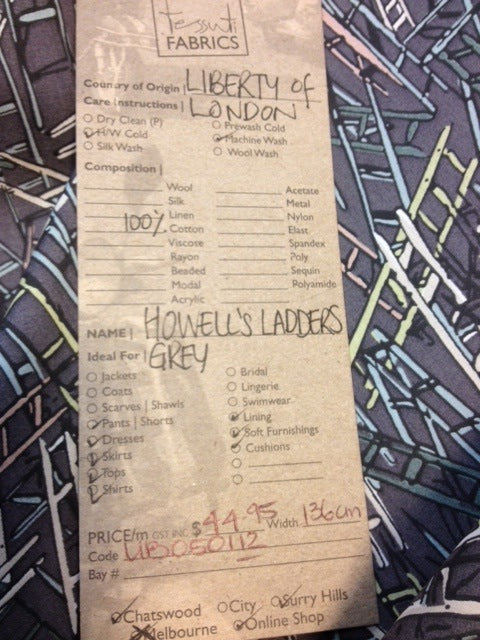 Tessuti
FABRICS
Country of Origin | LIBERTY of
LONDON
Care Instructions |
Dry Clean (P) Prewash Cold
H/W Cold Machine Wash
Silk Wash Wool Wash
Composition |
Wool Acetate
Silk Metal
Linen Nylon
100% Cotton Elast
Viscose Spandex
Rayon Poly
Beaded Sequin
Modal Polyamide
Acrylic
NAME | HOWELL'S LADDERS
GREY
Ideal For |
Jackets Bridal
Coats Lingerie
Scarves | Shawls Swimwear
Pants | Shorts Lining
Dresses Soft Furnishings
Skirts Cushions
Tops
Shirts
PRICE/m GST INC $44.95 Width 136cm
Code LIB050112
Bay #
Chatswood City Surry Hills
Melbourne Online Shop